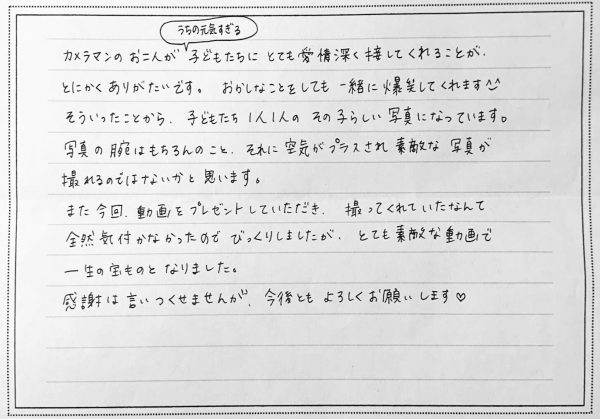 うちの元気すぎる
カメラマンのお二人が 子どもたちに とても愛情深く接してくれることが、
とにかくありがたいです。 おかしなことをしても 一緒に爆笑してくれます^^
そういったことから、子どもたち 1人1人の その子らしい 写真になっています。
写真の腕はもちろんのこと、それに空気がプラスされ 素敵な 写真が
撮れるのではないかと思います。
また今回、動画をプレゼントしていただき、 撮ってくれていたなんて
全然気付かなかったので びっくりしましたが、 とても素敵な動画で
一生の宝ものと なりました。
感謝は言いつくせませんが、今後とも よろしくお願いします♡